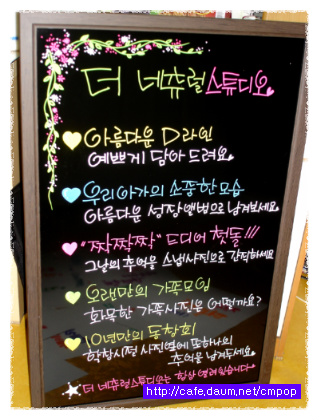 더 네츄럴스튜디오
아름다운 D라인
예쁘게 담아 드려요
우리아가의 소중한모습
아름다운 성장앨범으로 남겨보세요
"짝짝짝" 드디어 첫돌!!!
그날의 추억을 스냅사진으로 간직하세요
오랜만의 가족모임
화목한 가족사진은 어떨까요?
10년만의 동창회
학창시절 사진옆에 또하나의
추억을 남겨두세요
더 네츄럴스튜디오는 항상 열려있습니다
http://cafe.daum.net/cmpop